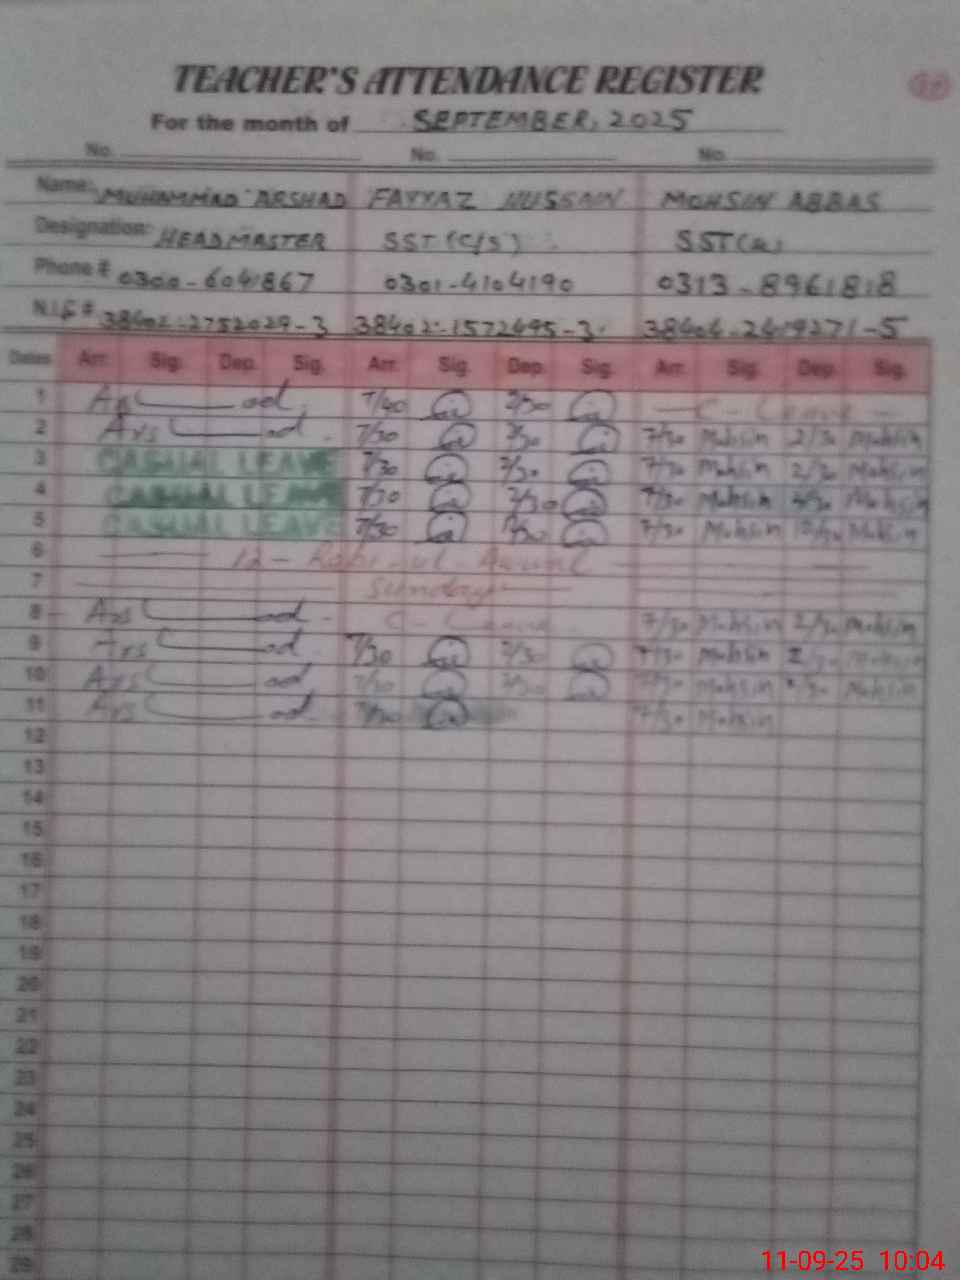 TEACHER'S ATTENDANCE REGISTER
For the month of SEPTEMBER, 2025
No. No. No.
Name: MUHAMMAD ARSHAD FAYYAZ HUSSAIN MOHSIN ABBAS
Designation: HEADMASTER SST (C/S) SST
Phone # 0300-6041867 0301-4104190 0313-8961818
N.I.C # 38402-1572495-3
Dates Arr. Sig. Dep. Sig. Arr. Sig. Dep. Sig. Arr. Sig. Dep. Sig.
1 7/40 2/30 C-Leave
2 7/30 2/30 7/30 Mohsin 2/30 Mohsin
3 CASUAL LEAVE 7/30 2/30 7/30 Mohsin 2/30 Mohsin
4 CASUAL LEAVE 7/30 2/30 7/30 Mohsin 2/30 Mohsin
5 CASUAL LEAVE 7/30 7/30 Mohsin 12/30 Mohsin
6 12-Rabi-ul-Awwal
7 Sunday
8 C-Leave 7/30 Mohsin 2/30 Mohsin
9 7/30 2/30 7/30 Mohsin 2/30 Mohsin
10 7/30 2/30 7/30 Mohsin 2/30 Mohsin
11 7/30 7/30 Mohsin
12
13
14
15
16
17
18
19
20
21
22
23
24
25
26
27
28
29
11-09-25 10:04